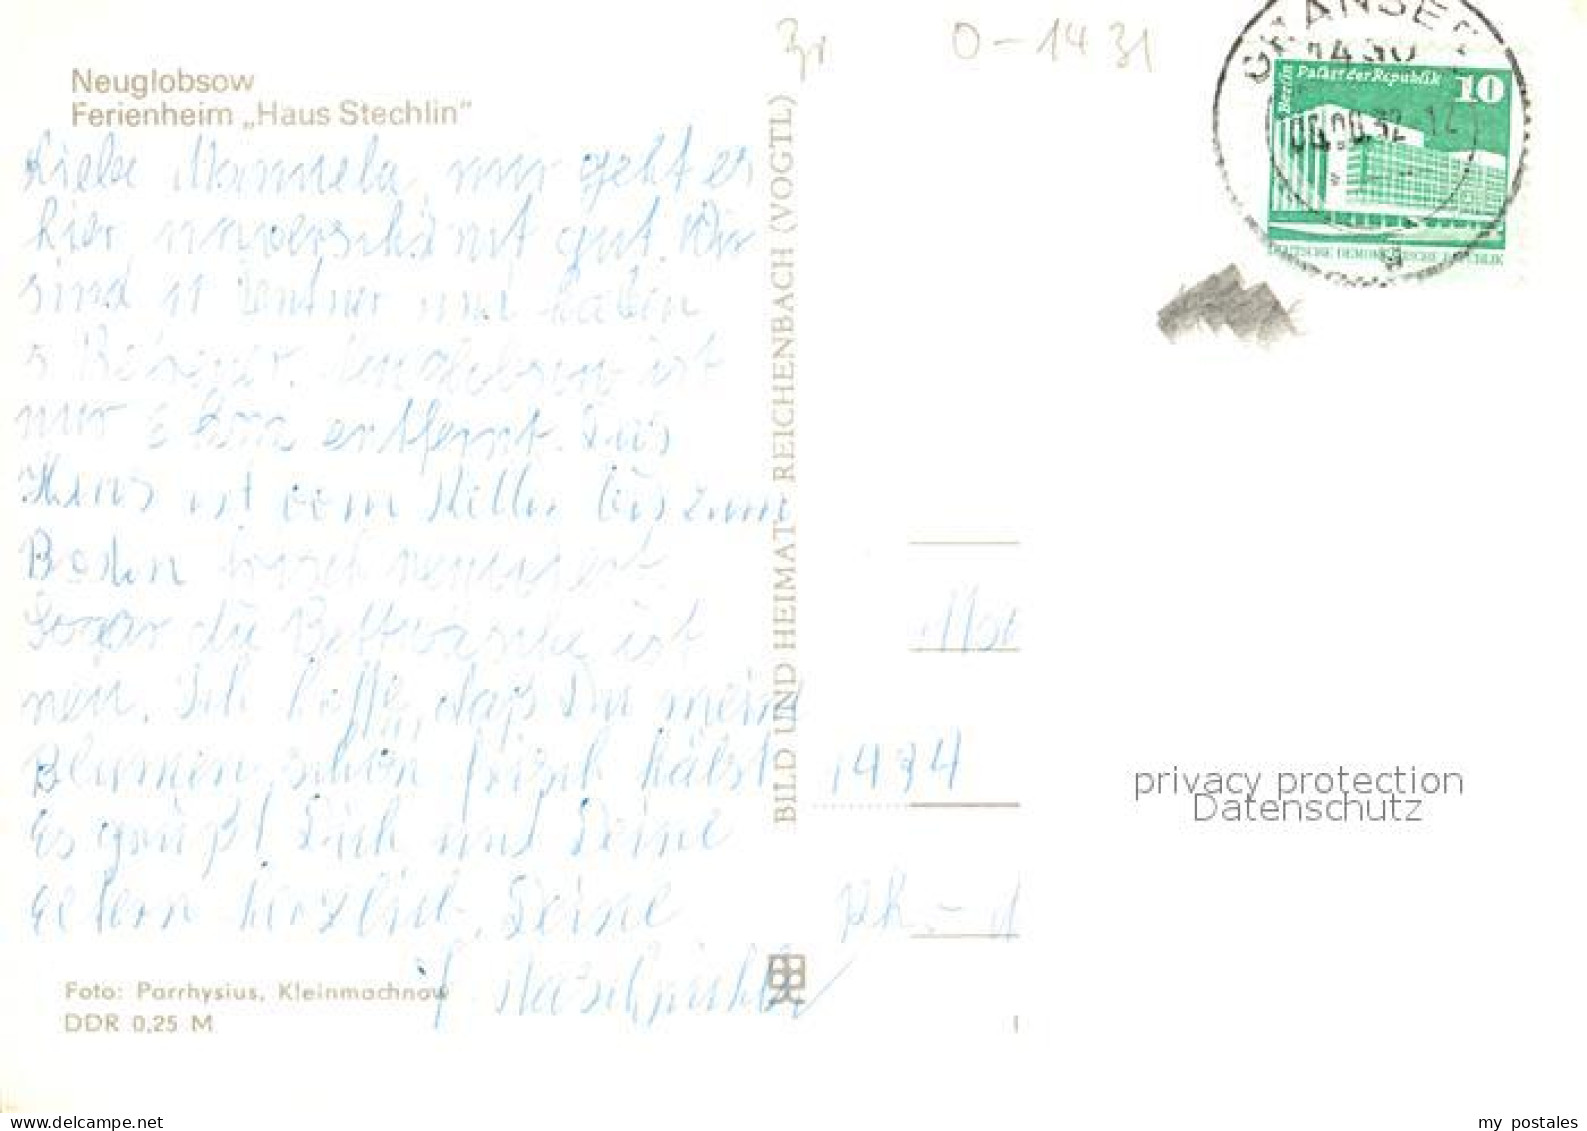 Neuglobsow
Ferienheim „Haus Stechlin"
Liebe Manuela, nur geht es
hier unverschämt gut. Wir
sind 11 Rentner und haben
5 Betreuer. Neuglobsow ist
nur 6 km entfernt. Das
Haus ist vom Keller bis zum
Boden frisch renoviert.
Sogar die Bettwäsche ist
neu. Ich hoffe, daß Du meine
Blumen schön frisch hälst
Es grüßt Dich und Deine
Eltern herzlich. Deine
Foto: Parrhysius, Kleinmachnow
DDR 0,25 M
BILD UND HEIMAT REICHENBACH (VOGTL)
0-1431
GRANSEE
1430
Berlin Palast der Republik 10
DEUTSCHE DEMOKRATISCHE REPUBLIK
privacy protection
Datenschutz
my postales